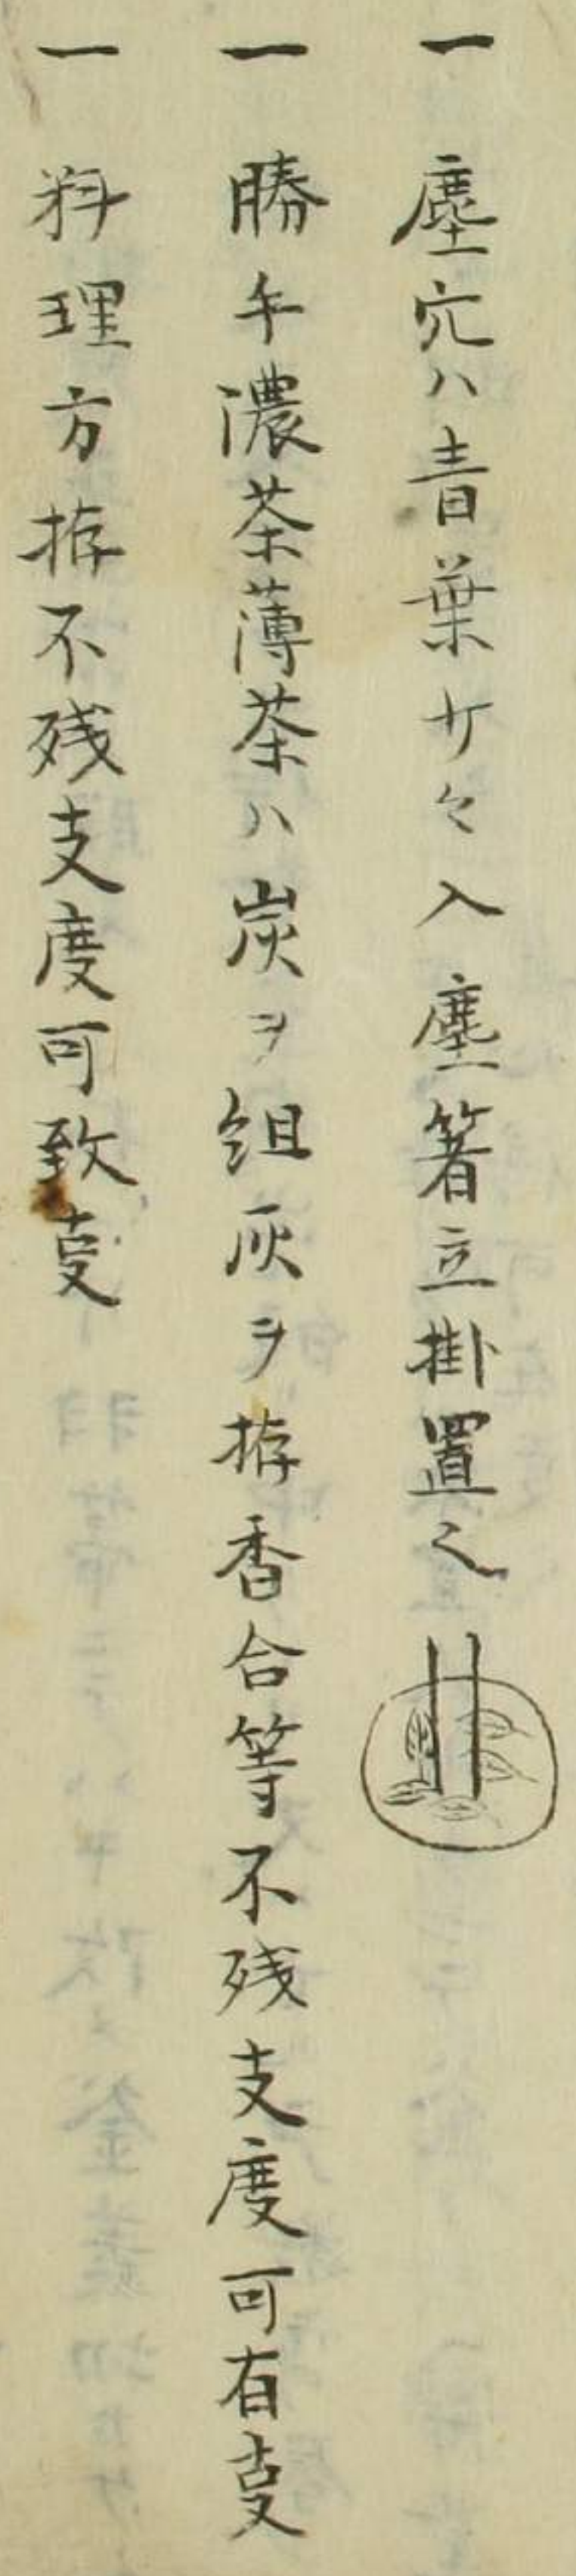 一 塵穴ハ青葉サ々入塵箸立掛置く
一 勝手濃茶薄茶ハ炭ヲ組灰ヲ拵香合等不残支度可有叓
一 料理方拵不残支度可致叓